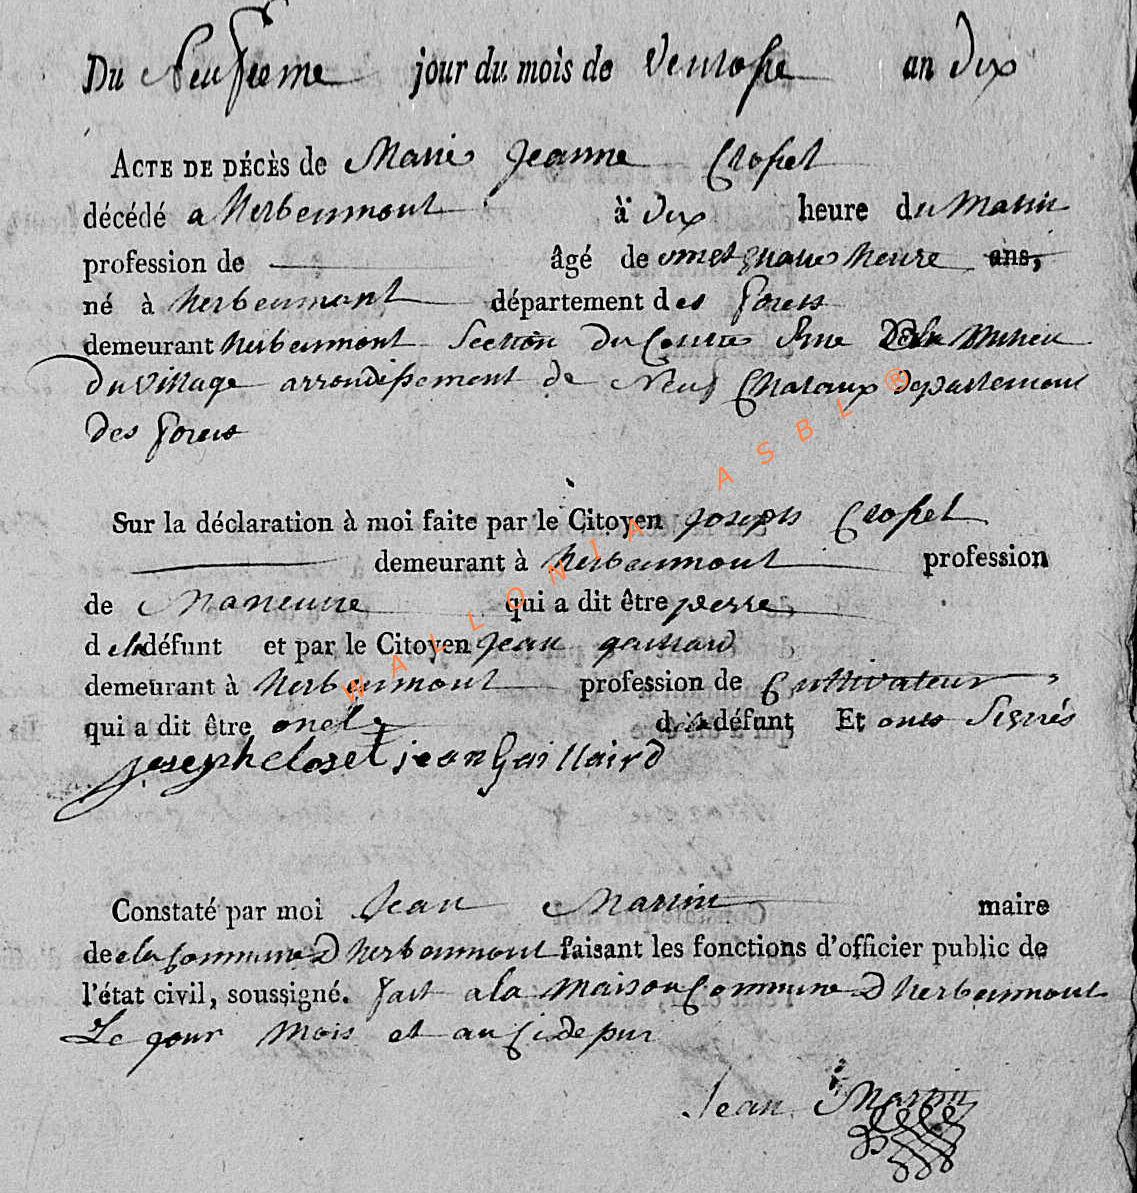 Du Neufieme jour du mois de Ventose an dix
ACTE DE DÉCÈS de Marie Jeanne Closset
décédé a herbeumont à dix heure du Matin
profession de âgé de vingt quatre heure ans,
né à herbeumont département des forets
demeurant herbeumont Section du Centre Rue Dela Milieu
Du Village arrondissement de Neuf Chateaux departement
des forets
Sur la déclaration à moi faite par le Citoyen joseph Closset
demeurant à herbeumont profession
de Maneuvre qui a dit être perre
d ela défunt et par le Citoyen jean gaillard
demeurant à herbeumont profession de Cultivateur
qui a dit être oncle dela défunt Et onts Signés
joseph closet jean Gaillaird
Constaté par moi Jean Martin maire
de ela Commune D herbeumont faisant les fonctions d'officier public de
l'état civil, soussigné. fait a la Maison Commune D herbeumont
Le jour Mois et an Cidepur
Jean Martin
WALLONIA ASBL ®